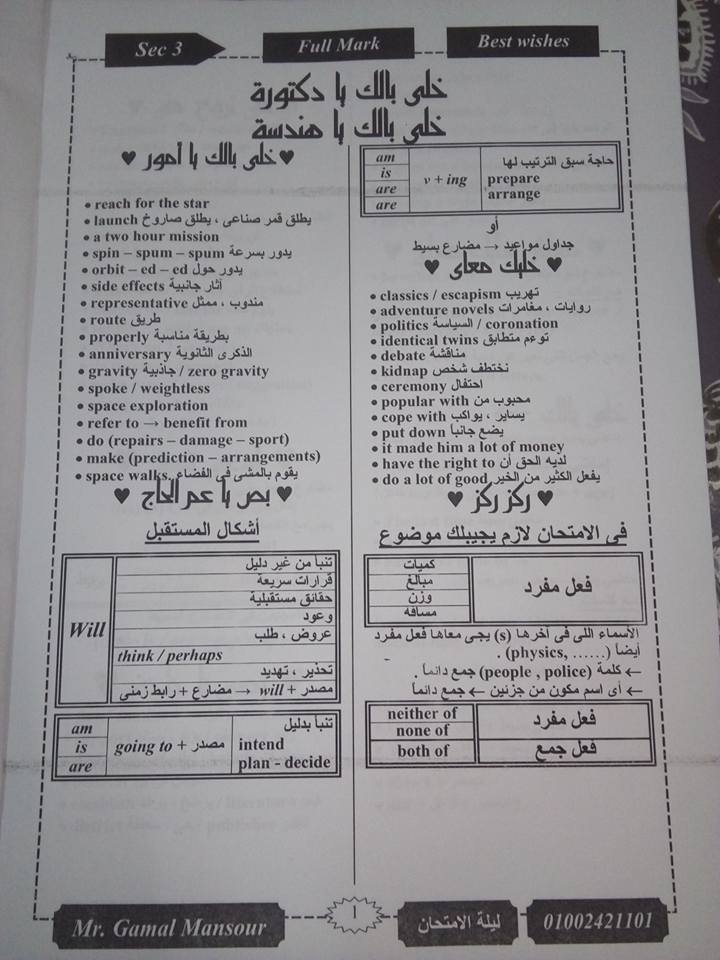 Sec 3
Full Mark
Best wishes
خلى بالك يا دكتورة
خلى بالك يا هندسة
♥ خلى بالك يا أمور ♥
• reach for the star
• launch يطلق قمر صناعى ، يطلق صاروخ
• a two hour mission
• spin – spum – spum يدور بسرعة
• orbit – ed – ed يدور حول
• side effects آثار جانبية
• representative مندوب ، ممثل
• route طريق
• properly بطريقة مناسبة
• anniversary الذكرى الثانوية
• gravity جاذبية / zero gravity
• spoke / weightless
• space exploration
• refer to → benefit from
• do (repairs – damage – sport)
• make (prediction – arrangements)
• space walks يقوم بالمشى فى الفضاء
♥ بص يا عم الحاج ♥
أشكال المستقبل
Will
تنبأ من غير دليل
قرارات سريعة
حقائق مستقبلية
وعود
عروض ، طلب
think / perhaps
تحذير ، تهديد
مصدر + will → مضارع + رابط زمنى
am
is
are
going to + مصدر
تنبأ بدليل
intend
plan - decide
am
is
are
are
v + ing
حاجة سبق الترتيب لها
prepare
arrange
أو
جداول مواعيد → مضارع بسيط
♥ خليك معاى ♥
• classics / escapism تهريب
• adventure novels روايات ، مغامرات
• politics السياسة / coronation
• identical twins توءم متطابق
• debate مناقشة
• kidnap نختطف شخص
• ceremony احتفال
• popular with محبوب من
• cope with يساير ، يواكب
• put down يضع جانباً
• it made him a lot of money
• have the right to لديه الحق أن
• do a lot of good يفعل الكثير من الخير
♥ ركز ركز ♥
فى الامتحان لازم يجيبلك موضوع
كميات
مبالغ
وزن
مسافه
فعل مفرد
الأسماء اللى فى آخرها (s) يجى معاها فعل مفرد
أيضاً (physics, ......) .
← كلمة (people , police) جمع دائماً .
← أى اسم مكون من جزئين ← جمع دائماً
neither of
none of
فعل مفرد
both of
فعل جمع
Mr. Gamal Mansour
١
ليلة الامتحان
01002421101